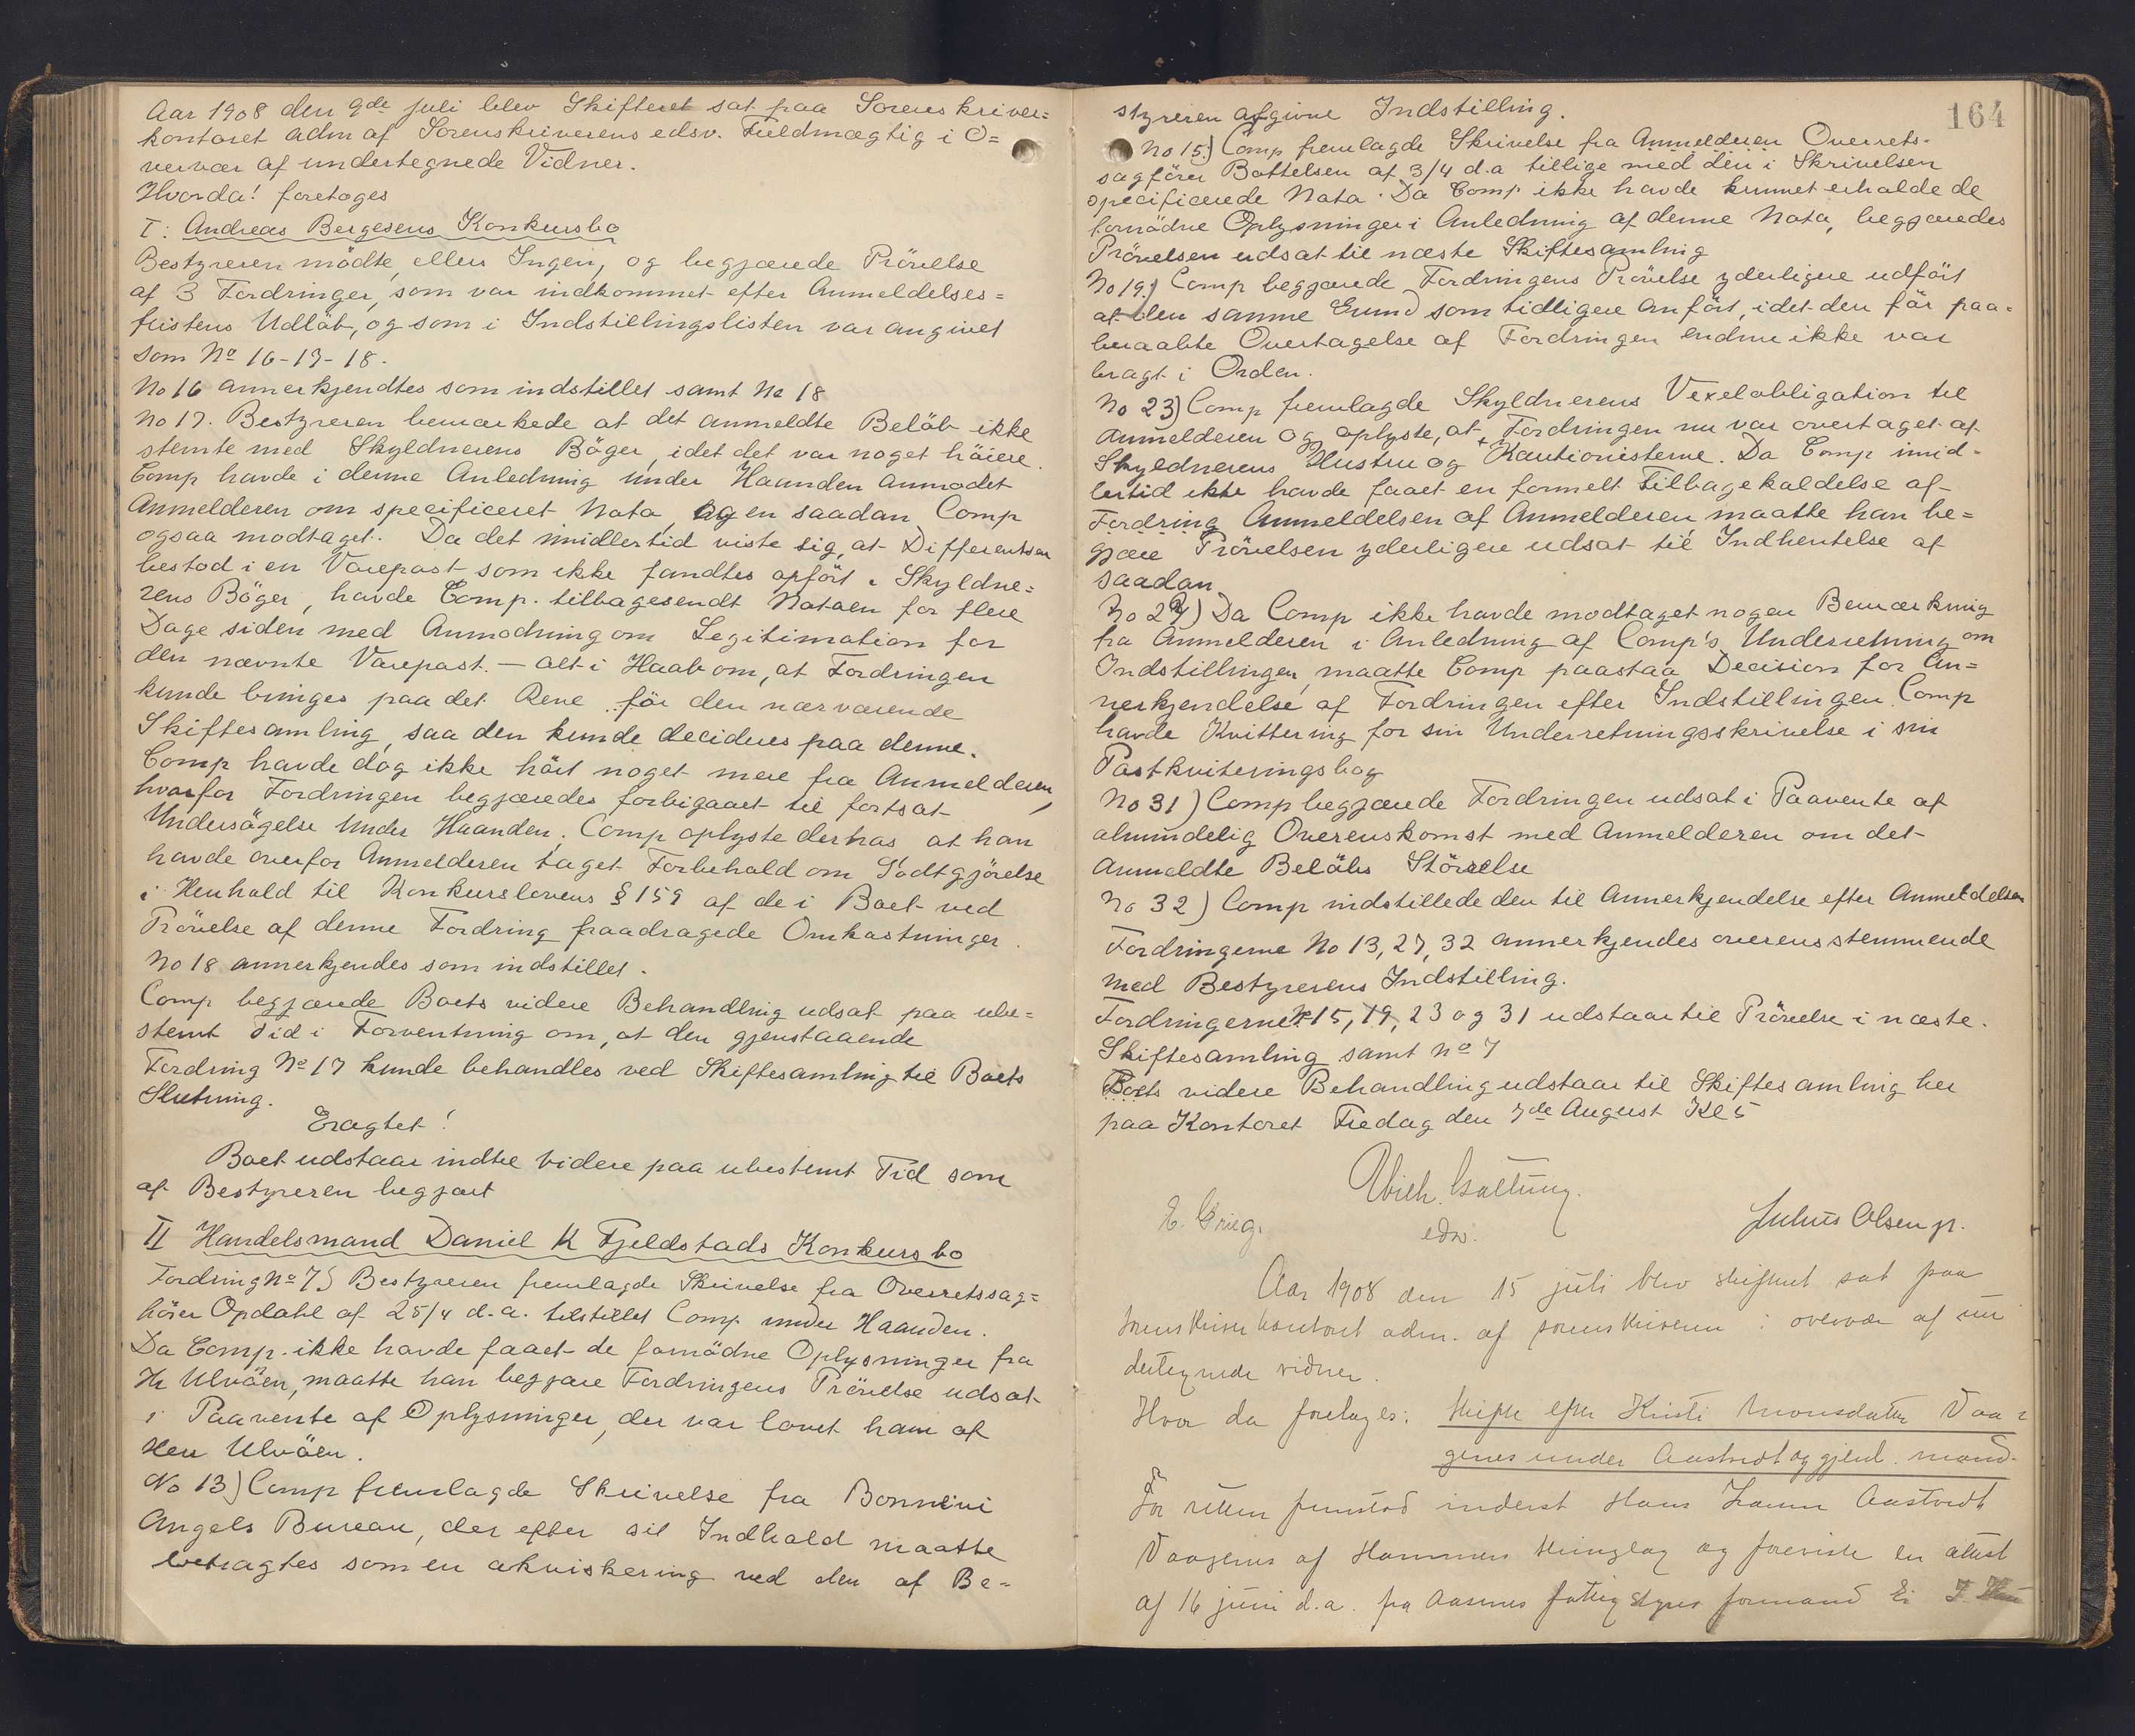 Aar 1908 den 9de juli blev Skifteret sat paa Sorenskriver=
kontoret adm af Sorenskriverens edsv. Fuldmægtig i O=
vervær af undertegnede Vidner.
Hvorda! foretoges
I: Andreas Bergesens Konkursbo
Bestyreren mödte, ellers Ingen, og begjærede Prövelse
af 3 Fordringer, som var indkommet efter Anmeldelses=
fristens Udlöb, og som i Indstillingslisten var angivet
som No 16-17-18.
No 16 annerkjendtes som indstillet samt No 18
No 17. Bestyreren bemærkede at det anmeldte Belöb ikke
stemte med Skyldnerens Böger, idet det var noget höiere.
Comp havde i denne Anledning under Haanden anmodet
Anmelderen om specificeret Nota, og en saadan Comp
ogsaa modtaget. Da det imidlertid viste sig, at Differentsen
bestod i en Varepost som ikke fandtes opfört i Skyldne=
rens Böger, havde Comp. tilbagesendt Notaen for flere
Dage siden med Anmodning om Legitimation for
den nævnte Varepost. — alt i Haab om, at Fordringen
kunde bringes paa det Rene för den nærværende
Skiftesamling, saa den kunde decideres paa denne.
Comp havde dog ikke hört noget mere fra Anmelderen,
hvorfor Fordringen begjæredes forbigaaet til fortsat
Undersögelse under Haanden. Comp oplyste derhos at han
havde overfor Anmelderen taget Forbehold om Godtgjörelse
i Henhold til Konkurslovens § 159 af de i Boet ved
Prövelse af denne Fordring paadragede Omkostninger.
No 18 annerkjendes som indstillet.
Comp begjærede Boets videre Behandling udsat paa ube=
stemt Tid i Forventning om, at den gjenstaaende
Fordring No 17 kunde behandles ved Skiftesamling til Boets
Slutning.
Eragtet!
Boet udstaar indtil videre paa ubestemt Tid som
af Bestyreren begjært
II Handelsmand Daniel K Fjeldstads Konkursbo
Fordring No 7) Bestyreren fremlagde Skrivelse fra Overretssag=
förer Opdahl af 25/4 d.a. tilstillet Comp under Haanden.
Da Comp. ikke havde faaet de fornödne Oplysninger fra
Hr Ulvöen, maatte han begjære Fordringens Prövelse udsat
i Paavente af Oplysninger, der var lovet ham af
Herr Ulvöen.
No 13) Comp fremlagde Skrivelse fra Bonnevi
Angels Bureau, der efter sit Indhold maatte
betragtes som en akviskering ved den af Be=
164
styreren afgivne Indstilling.
No 15) Comp fremlagde Skrivelse fra Anmelderen Overrets-
sagförer Bottelsen af 3/4 d.a tillige med den i Skrivelsen
specificerede Nota. Da Comp ikke havde kunnet erholde de
fornödne Oplysninger i Anledning af denne Nota, begjæredes
Prövelsen udsat til næste Skiftesamling
No 19) Comp begjærede Fordringens Prövelse yderligere udfört
af den samme Grund som tidligere anfört, idet den för paa=
beraabte Overtagelse af Fordringen endnu ikke var
bragt i Orden.
No 23) Comp fremlagde Skyldnerens Vexelobligation til
Anmelderen og oplyste, at Fordringen nu var overtaget af
Skyldnerens Hustru og Kautionisterne. Da Comp imid-
lertid ikke havde faaet en formelt Tilbagekaldelse af
Fordring Anmeldelsen af Anmelderen maatte han be=
gjære Prövelsen yderligere udsat til Indhentelse af
saadan
No 27) Da Comp ikke havde modtaget nogen Bemærkning
fra Anmelderen i Anledning af Comp's Underretning om
Indstillingen, maatte Comp paastaa Decision for An=
nerkjendelse af Fordringen efter Indstillingen. Comp
havde Kvittering for sin Underretningsskrivelse i sin
Postkviteringsbog
No 31) Comp begjærede Fordringen udsat i Paavente af
almindelig Overenskomst med Anmelderen om det
anmeldte Belöbs Störrelse
No 32) Comp indstillede den til Annerkjendelse efter Anmeldelsen
Fordringerne No 13, 27, 32 annerkjendes overensstemmende
med Bestyrerens Indstilling.
Fordringerne No 15, 19, 23 og 31 udstaar til Prövelse i næste
Skiftesamling samt No 7
Boets videre Behandling udstaar til Skiftesamling her
paa Kontoret Fredag den 7de August Kl 5
edsv.
E. Grieg.
Julius Olsen jr.
Aar 1908 den 15 juli blev skifteret sat paa
sorenskriverkontoret adm. af sorenskriveren i overvær af un
dertegnede vidner.
Hvor da foretoges: Skifte efter Kristi Monsdatter Vaa=
genes under Aastvedt og gjenl. mand.
For retten fremstod inderst Hans Aastvedt
Vaagenes af Hammers thinglag og foreviste en attest
af 16 juni d.a. fra Aasenes fattigstyres formand